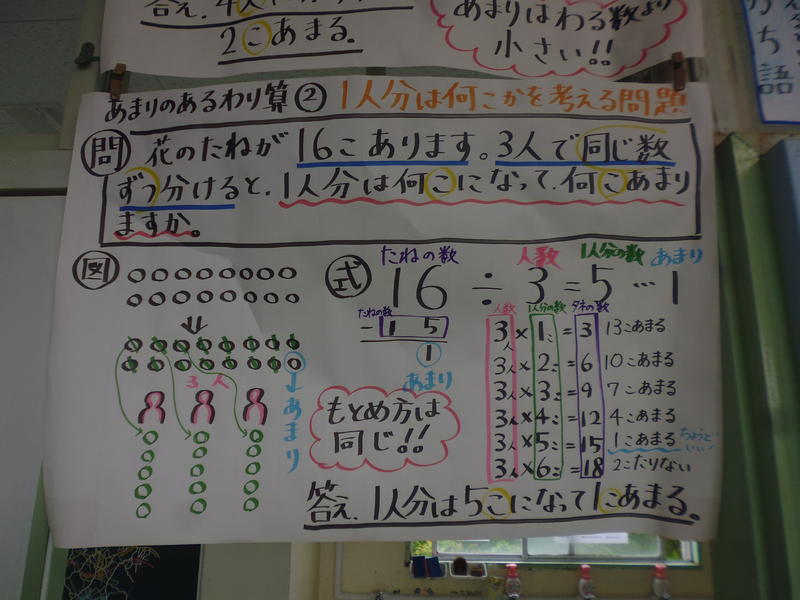 答え.4人に
2こあまる.
あまりはわる数より
小さい!!
あまりのあるわり算② 1人分は何こかを考える問題
問 花のたねが16こあります。3人で同じ数
ずつ分けると、1人分は何こになって、何こあまり
ますか。
図
3人
あまり
式
たねの数 人数 1人分の数 あまり
16÷3=5…1
たねの数
-15
1
あまり
人数 1人分の数 タネの数
3人×1こ=3 13こあまる
3人×2こ=6 10こあまる
3人×3こ=9 7こあまる
3人×4こ=12 4こあまる
3人×5こ=15 1こあまる ちょうどいい!
3人×6こ=18 2こたりない
もとめ方は
同じ!!
答え.1人分は5こになって1こあまる.